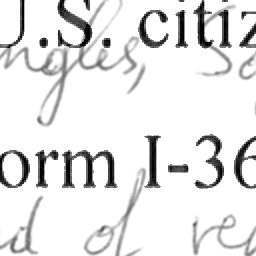 U.S. citiz
ngles, So
orm I-36
d of re